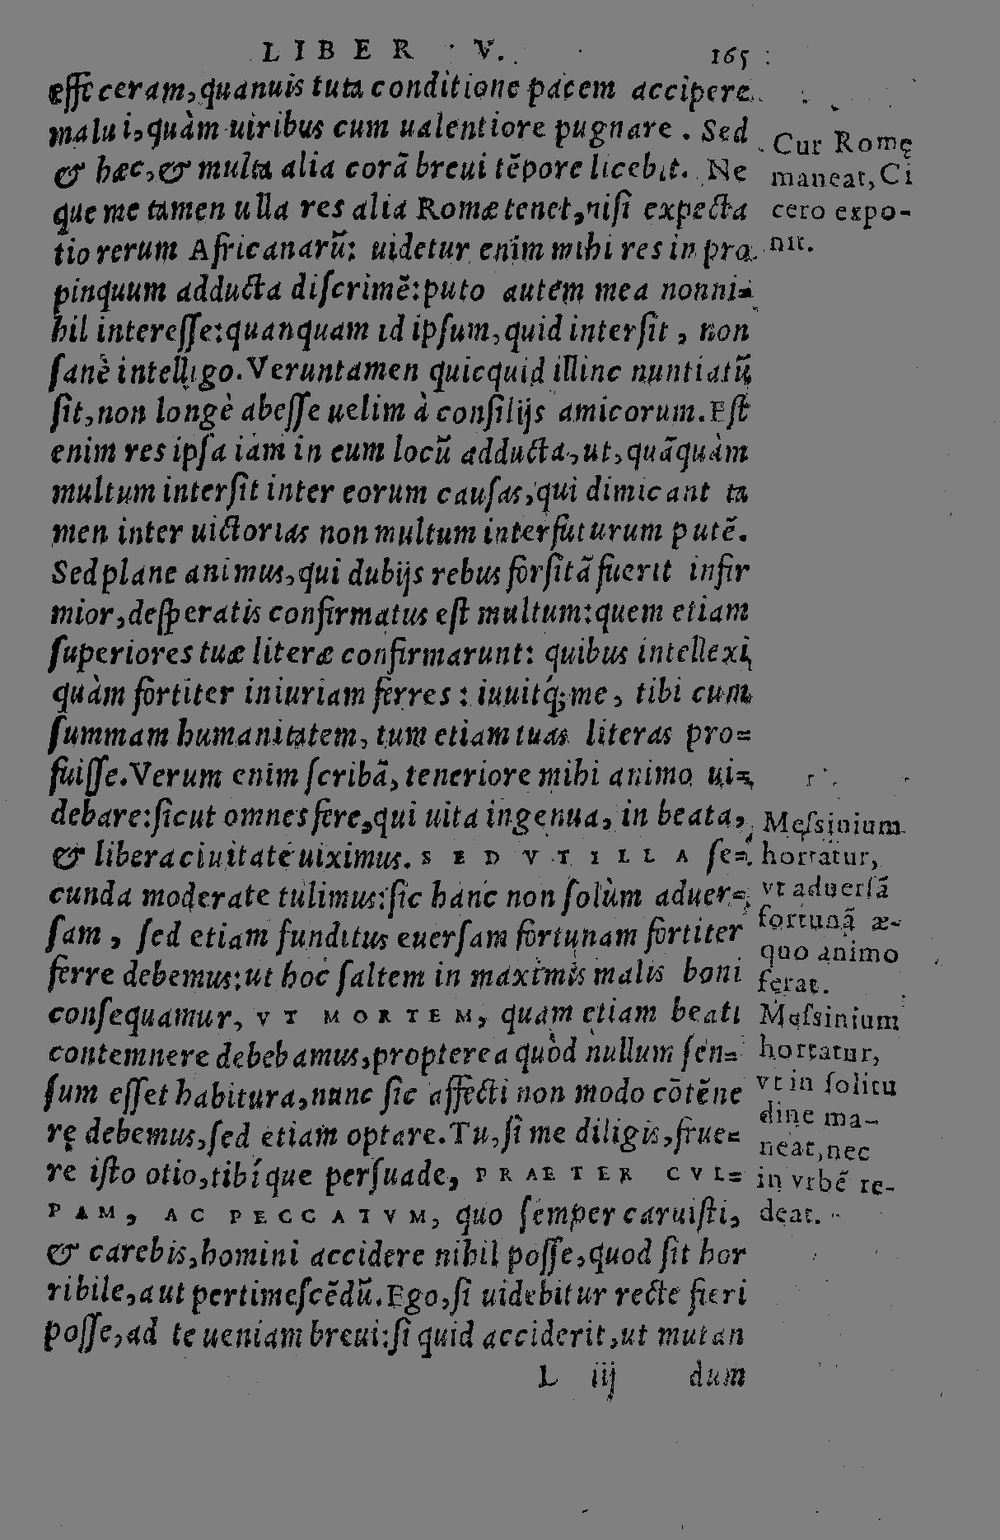 LIBER V. 165
effeceram, quanuis tuta conditione pacem accipere
malui, quàm uiribus cum ualentiore pugnare. Sed
& hæc, & multa alia corã breui tẽpore licebit. Ne
que me tamen ulla res alia Romæ tenet, nisi expecta
tio rerum Africanarũ: uidetur enim mihi res in pro
pinquum adducta discrimẽ: puto autem mea nonni=
hil interesse: quanquam id ipsum, quid intersit, non
sanè intelligo. Veruntamen quicquid illinc nuntiatũ
sit, non longè abesse uelim à consilijs amicorum. Est
enim res ipsa iam in eum locũ adducta, ut, quãquàm
multum intersit inter eorum causas, qui dimicant ta
men inter uictorias non multum interfuturum putẽ.
Sed plane animus, qui dubijs rebus forsitã fuerit infir
mior, desperatis confirmatus est multum: quem etiam
superiores tuæ literæ confirmarunt: quibus intellexi,
quàm fortiter iniuriam ferres: iuuitq́; me, tibi cum
summam humanitatem, tum etiam tuas literas pro=
fuisse. Verum enim scribã, teneriore mihi animo ui=
debare: sicut omnes fere, qui uita ingenua, in beata,
& libera ciuitate uiximus. SED VT ILLA se=
cunda moderate tulimus: sic hanc non solùm aduer=
sam, sed etiam funditus euersam fortunam fortiter
ferre debemus: ut hoc saltem in maximis malis boni
consequamur, VT MORTEM, quam etiam beati
contemnere debebamus, propterea quòd nullum sen=
sum esset habitura, nunc sic affecti non modo cõtẽne
rę debemus, sed etiam optare. Tu, si me diligis, frue=
re isto otio, tibíque persuade, PRAETER CVL=
PAM, AC PECCATVM, quo semper caruisti,
& carebis, homini accidere nihil posse, quod sit hor
ribile, aut pertimescẽdũ. Ego, si uidebitur recte fieri
posse, ad te ueniam breui: si quid acciderit, ut mutan
L iij dum
Cur Romę
maneat, Ci
cero expo-
nit.
Messinium
hortatur,
vt aduersã
fortunã æ-
quo animo
ferat.
Messinium
hortatur,
vt in solitu
dine ma-
neat, nec
in vrbẽ re-
deat.